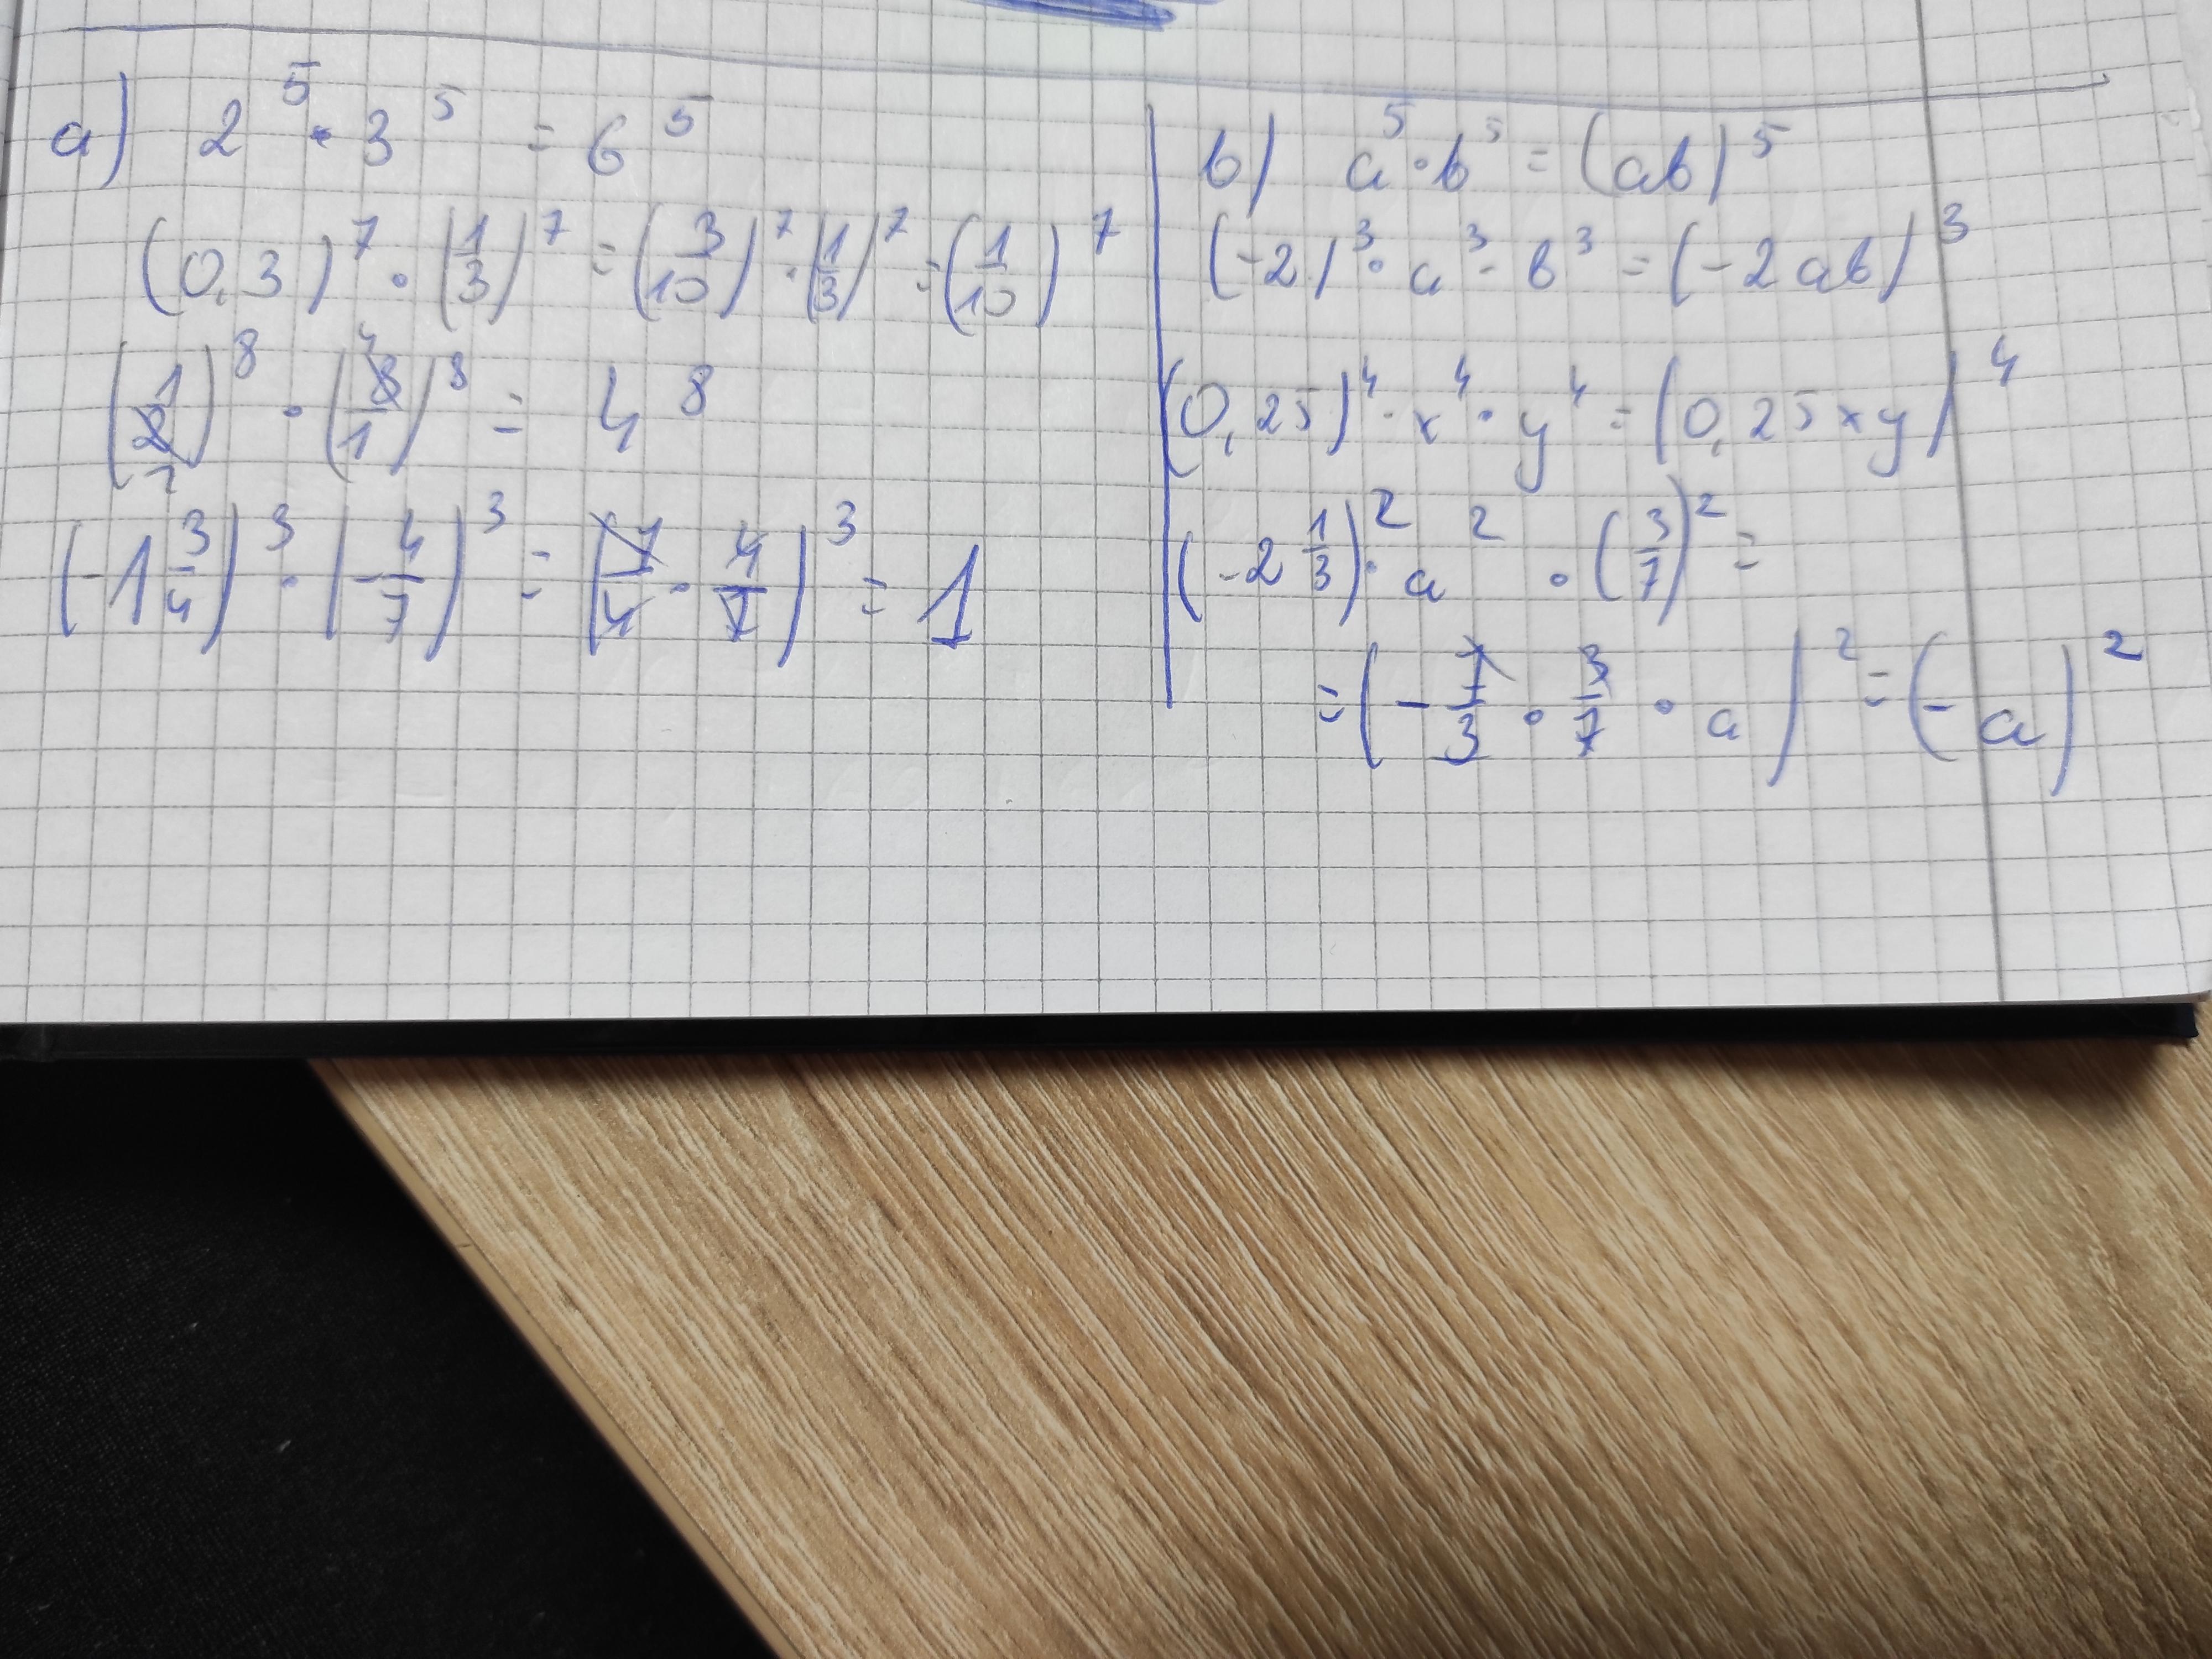 a) 2⁵ · 3⁵ = 6⁵
(0,3)⁷ · (1/3)⁷ = (3/10)⁷ · (1/3)⁷ = (1/10)⁷
(1/2)⁸ · (8/1)⁸ = 4⁸
(-1 3/4)³ · (-4/7)³ = (7/4 · 4/7)³ = 1
b) a⁵ · b⁵ = (ab)⁵
(-2)³ · a³ · b³ = (-2ab)³
(0,25)⁴ · x⁴ · y⁴ = (0,25xy)⁴
(-2 1/3)² · a² · (3/7)² =
= (-7/3 · 3/7 · a)² = (-a)²